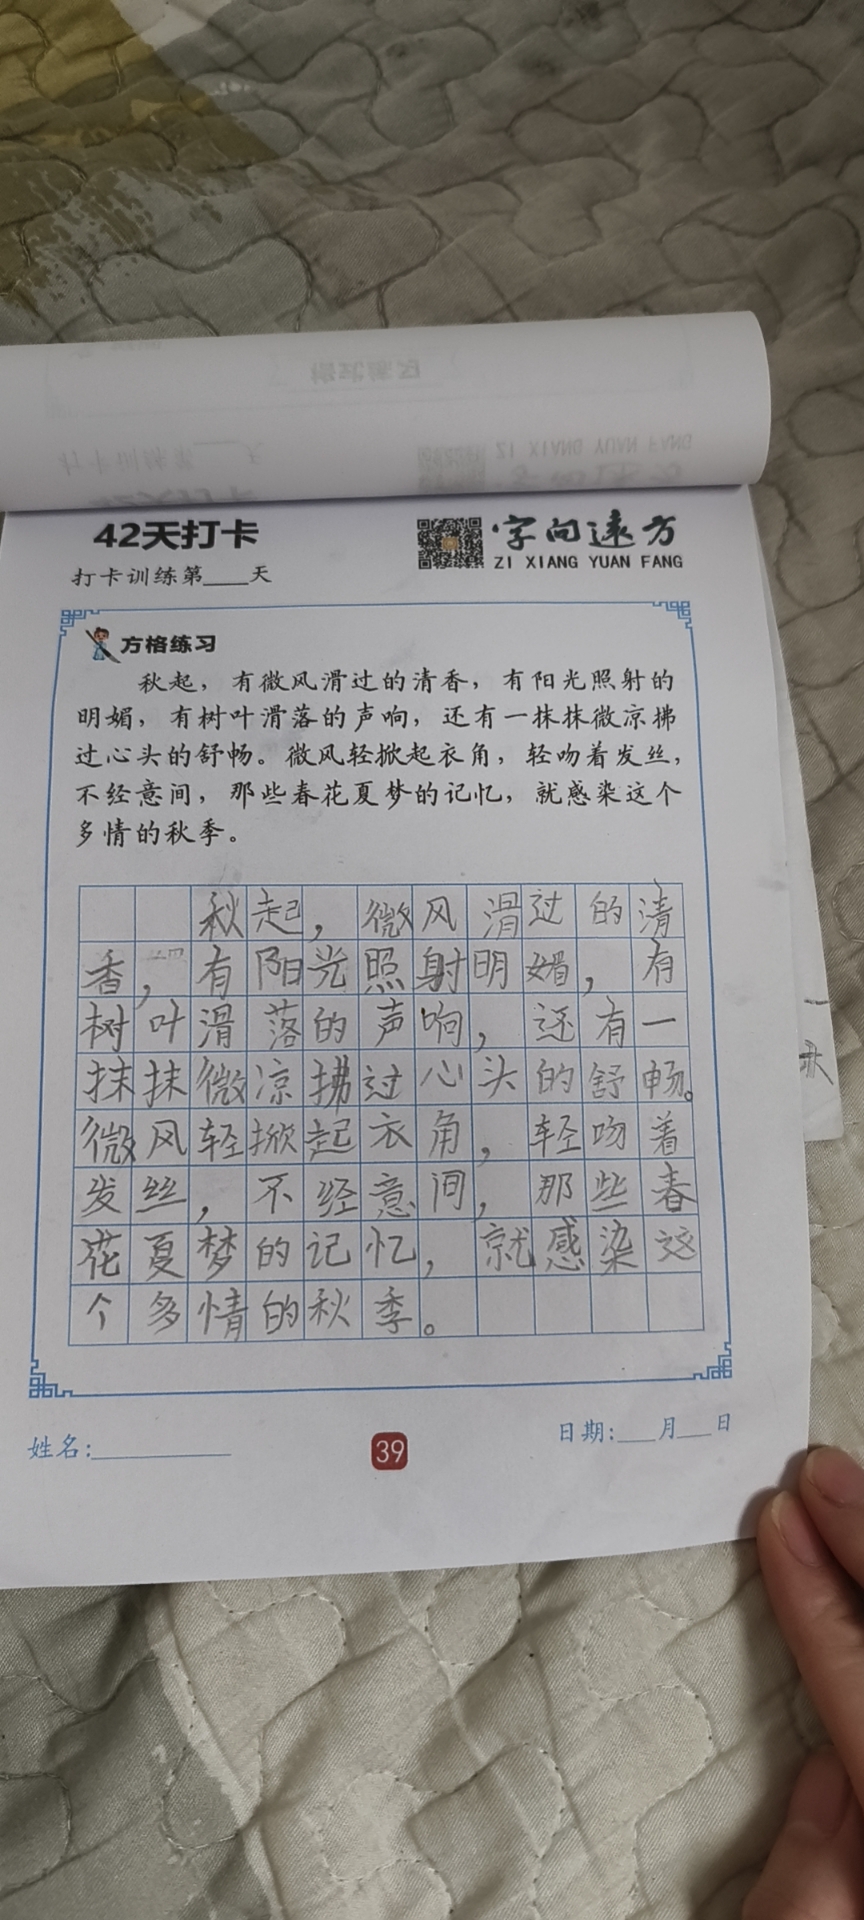 42天打卡
打卡训练第____天
字向远方
ZI XIANG YUAN FANG
方格练习
秋起，有微风滑过的清香，有阳光照射的
明媚，有树叶滑落的声响，还有一抹抹微凉拂
过心头的舒畅。微风轻掀起衣角，轻吻着发丝，
不经意间，那些春花夏梦的记忆，就感染这个
多情的秋季。
秋起，微风滑过的清
香，有阳光照射明媚，有
树叶滑落的声响，还有一
抹抹微凉拂过心头的舒畅。
微风轻掀起衣角，轻吻着
发丝，不经意间，那些春
花夏梦的记忆，就感染这
个多情的秋季。
姓名:__________
39
日期:___月___日